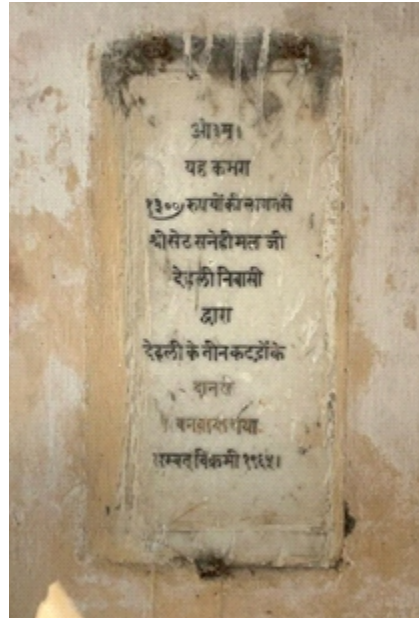 ओ३म्।
यह कमरा
१३०० रुपयों की लागत से
श्री सेठ सनेहीमल जी
देहली निवासी
द्वारा
देहली के तीन कटड़ों के
दान से
बनवाया गया
सम्वत् विक्रमी १९६५।